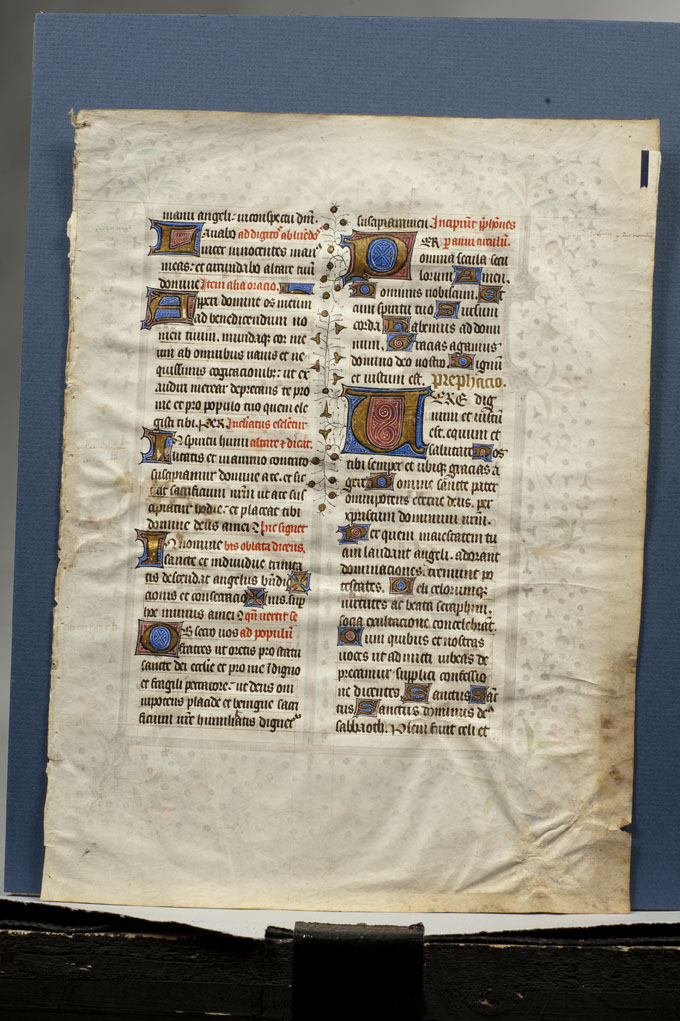 manu angeli. in conspectu dm̄.
Lavabo ad digitoᷤ abluēdoᷤ
inter innocentes manꝰ
meas: et circundabo altare tuū
domine Item alia oracio.
Aperi domine os meum
ad benedicendum no
men tuum. mundaqꝫ cor me
um ab omnibus vanis et ne
quissimis cogitacionibꝫ: ut ex
audiri merear deprecans te pro
me et pro populo tuo quem ele
gisti tibi. PER Inclinatus es lentur
IN spiritu humi altare ⁊ dicat.
litatis et in animo contrito
suscipiamur domine a te. et sic
fiat sacrificium nr̄m ut a te sus
cipiatur hodie. et placeat tibi
domine deus amen Hic signet
IN nomine his oblata dicens.
sancte et individue trinita
tis descendat angelus bn̄dic
cionis et consecracio nis. sup
hoc munus amen qn̄ vertit se
OS seco vos ad populū
fratres ut oretis pro statu
sancte dei eccłie et pro me ĩdigno
et fragili peccatore. ut deus om
nipotens placide et benigne sacri
ficium nr̄e humilitatis dignetꝰ
suscipi amen. Incipiūt ꝓphōnes
PER ꝑ anni circulū.
omnia secula secu
lorum Amen.
Dominus vobiscum. Et
cum spiritu tuo Sursum
corda. Habemus ad domi
num. Gracias agamus
domino deo nostro. Dignū
et iustum est. Prephacio.
VERE dig
num et iustū
est. equum et
salutare nos
tibi semper et ubiqꝫ gracias a
gere Domine sancte pater
omnipotens eterne deus. per
cristum dominum nr̄m.
Per quem maiestatem tu
am laudant angeli. adorant
dominaciones. tremunt po
testates. Celi celorumqꝫ
virtutes ac beata seraphim.
socia exultacione concelebrāt.
Cum quibus et nostras
voces ut admitti iubeas de
precamur supplici confessio
ne dicentes. Sanctus Sanc
tus Sanctus dominus deꝰ
sabbaoth. Pleni sunt celi et